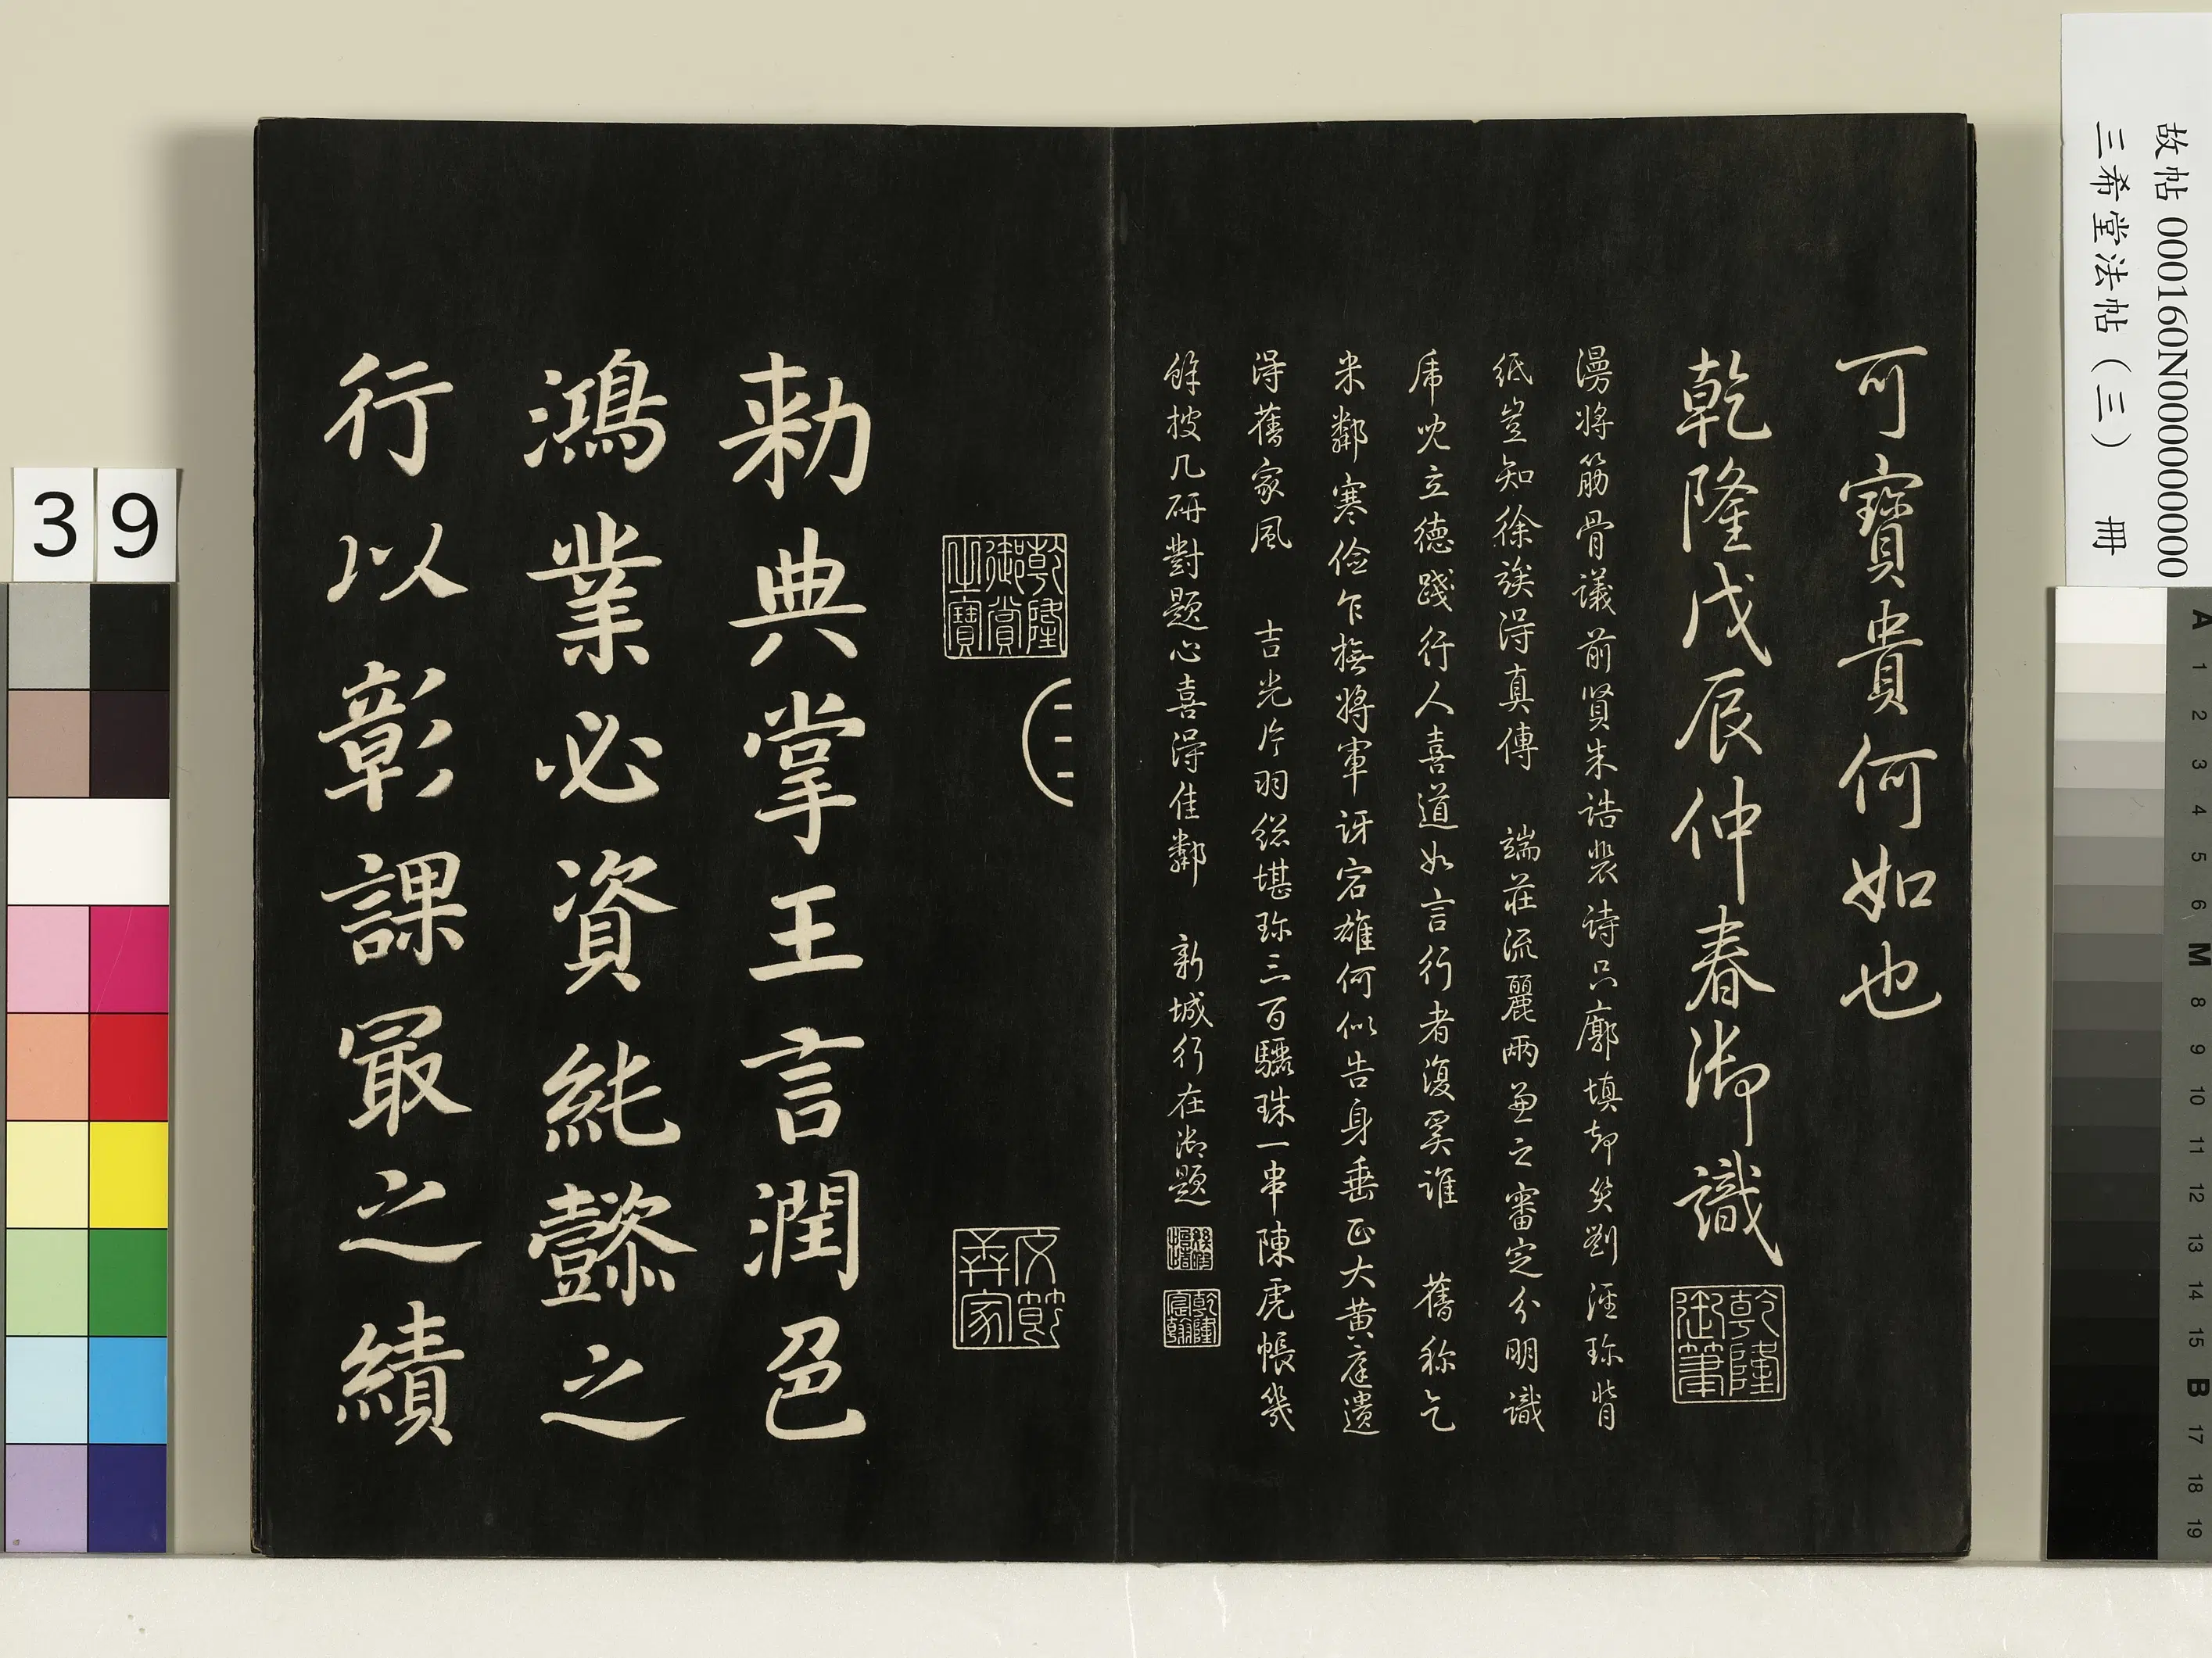 可寶貴何如也
乾隆戊辰仲春御識
乾隆御筆
漫將筋骨議前賢朱誥裴詩只廓填却笑劉涇珎背
紙豈知徐誒得真傳 端莊流麗兩兼之審定分明識
立德踐行人喜道如言行者復奚誰 舊稱乞
米鄰寒儉乍撫將軍訝宕雄何似告身垂正大黃庭遺
得舊家風 吉光片羽総堪珎三百驪珠一串陳虎帳幾
餘披几研對題心喜得佳鄰 新城行在御題
乾隆宸翰
乾隆御賞之寶
勑典掌王言潤色
鴻業必資純懿之
行以彰課最之績
故帖000160N000000000
三希堂法帖(三) 冊
39
A 1 2 3 4 5 6 M 8 9 10 11 12 13 14 15 B 17 18 19